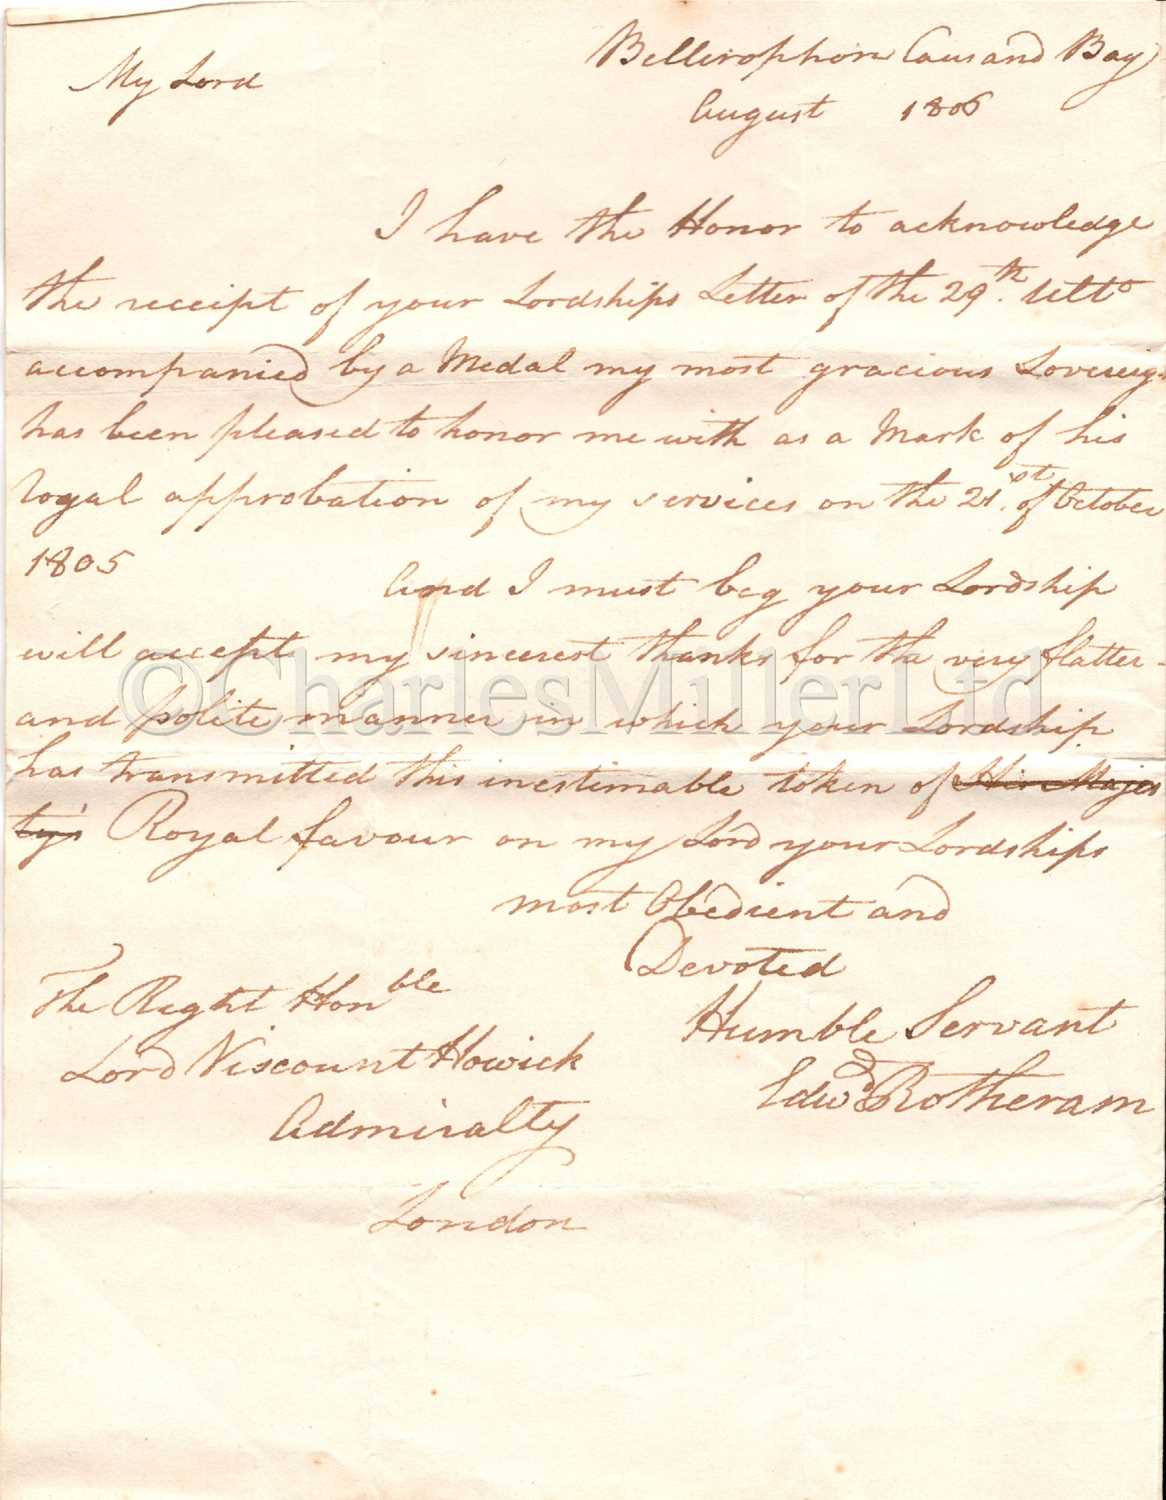 Bellerophon Causand Bay
My Lord
August 1806
I have the Honor to acknowledge
the receipt of your Lordships Letter of the 29th. Ulto
accompanied by a Medal my most gracious Sovereign
has been pleased to honor me with as a Mark of his
royal approbation of my services on the 21st. of October
1805
And I must beg your Lordship
will accept my sincerest thanks for the very flatter-
and polite manner in which your Lordship
has transmitted this inestimable token of His Majes
ty's Royal favour on my Lord your Lordships
most Obedient and
Devoted
Humble Servant
Edwd Rotheram
The Right Honble
Lord Viscount Howick
Admiralty
London
©CharlesMillerLtd